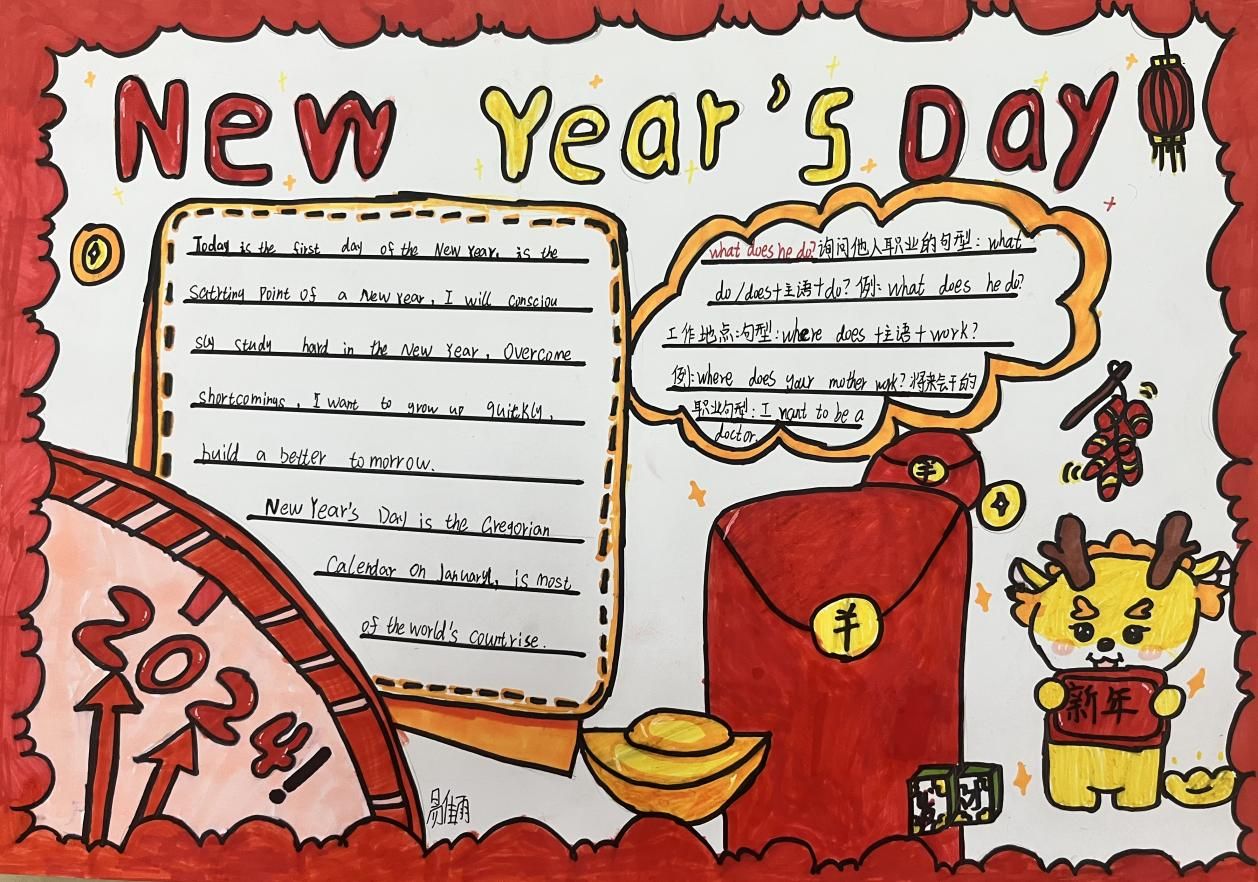 New Year's Day
Today is the first day of the New Year, is the
Satrting Point of a New Year, I will consciou
sly study hard in the New Year, Overcome
shortcomings, I want to grow up quickly,
build a better tomorrow.
New Year's Day is the Gregorian
Calendar on January1, is most
of the world's countrise.
what does he do?询问他人职业的句型:what
do/does+主语+do?例:what does he do?
工作地点:句型:where does +主语+work?
例:where does your mother work?将来想干的
职业句型:I want to be a
doctor.
羊
羊
2024!
新年
财